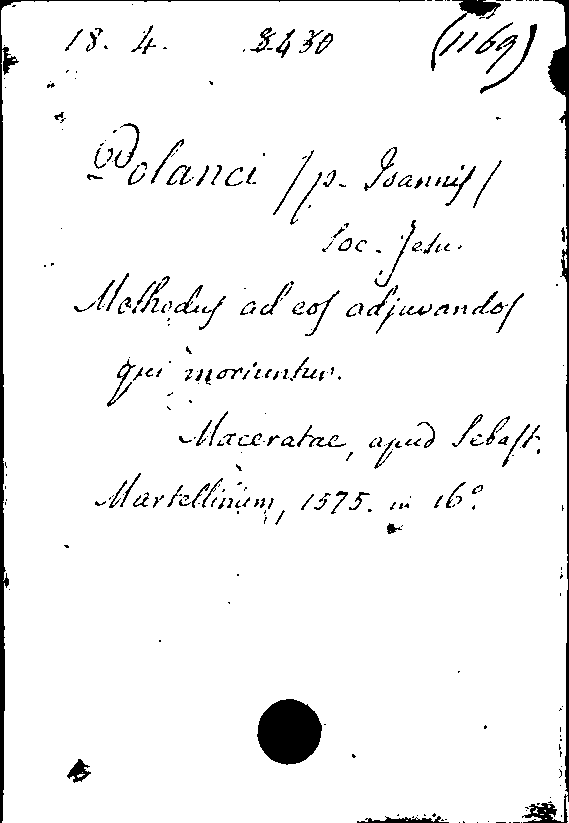 18. 4. 3430 (1169)
Polanci / p. Ioannis /
Soc. Jesu.
Methodus ad eos adjuvandos
qui moriuntur.
Maceratae, apud Sebast.
Martellinum, 1575. in 16°